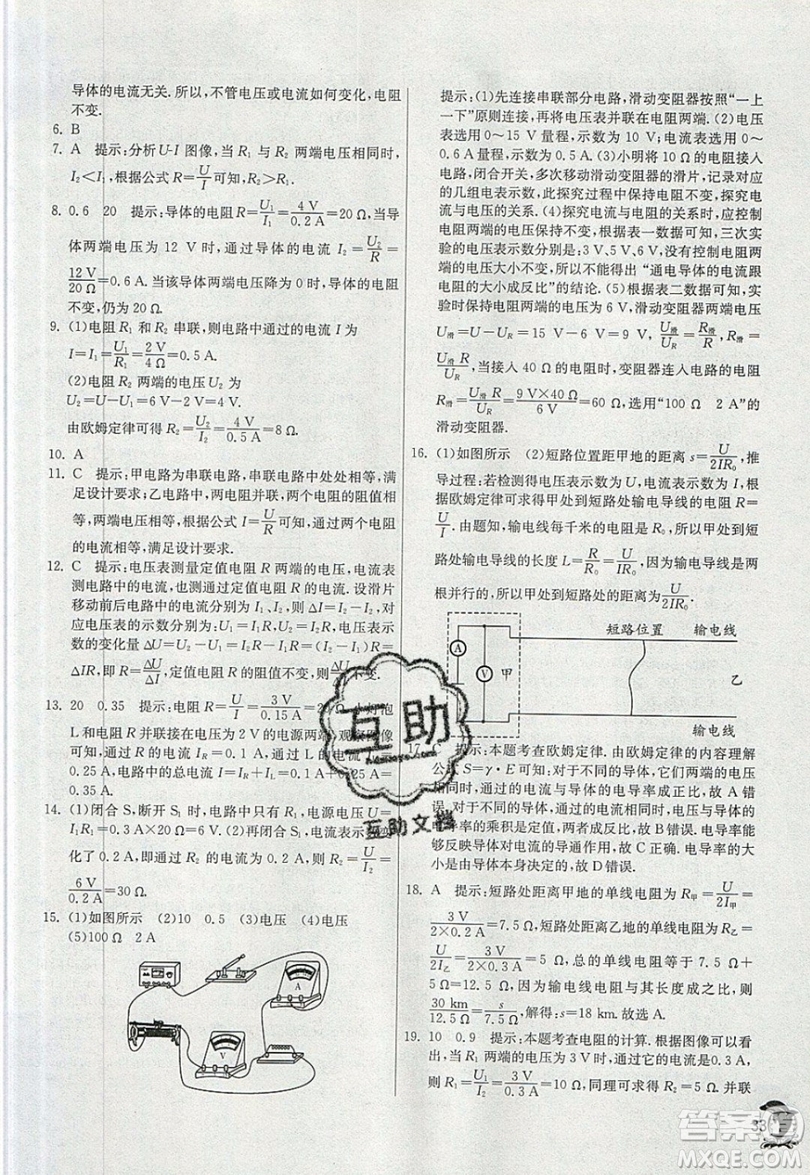 导体的电流无关.所以,不管电压或电流如何变化,电阻
不变.
6. B
7. A 提示:分析U-I 图像,当 R₁ 与 R₂ 两端电压相同时,
I₂<I₁,根据公式 R=U/I可知,R₂>R₁.
8. 0.6 20 提示:导体的电阻 R=U₁/I₁=4 V/0.2 A=20 Ω,当导
体两端电压为 12 V 时,通过导体的电流 I₂=U₂/R=
12 V/20 Ω=0.6 A.当该导体两端电压降为 0 时,导体的电阻
不变,仍为 20 Ω.
9. (1)电阻 R₁ 和 R₂ 串联,则电路中通过的电流 I 为
I=I₁=U₁/R₁=2 V/4 Ω=0.5 A.
(2)电阻 R₂ 两端的电压U₂ 为
U₂=U-U₁=6 V-2 V=4 V.
由欧姆定律可得 R₂=U₂/I₂=4 V/0.5 A=8 Ω.
10. A
11. C 提示:甲电路为串联电路,串联电路中处处相等,满
足设计要求;乙电路中,两电阻并联,两个电阻的阻值相
等,两端电压也相等,根据公式 I=U/R可知,通过两电阻
的电流相等,满足设计要求.
12. C 提示:电压表测量定值电阻 R 两端的电压,电流表
测电路中的电流,也测通过定值电阻 R 的电流.设滑片
移动前后电路中的电流分别为 I₁、I₂,则 ΔI=I₁-I₂,对
应电压表的示数分别为:U₁=I₁R,U₂=I₂R,电压表示
数的变化量 ΔU=U₁-U₂=I₁R-I₂R=(I₁-I₂)R=
ΔIR,即 R=ΔU/ΔI,定值电阻 R 的阻值不变,则ΔU/ΔI不变.
13. 20 0.35 提示:电阻 R=U/I=3 V/0.15 A=
L和电阻R并联在 2 V 的电源两端,
可知,通过 R 的电流 I_R=0.1 A,通过 L
0.25 A,电路中的总电流 I=I_R+I_L=0.1 A+0.25 A=
0.35 A.
14. (1)闭合 S,断开 S₁ 时,电路中只有 R₁,电源电压 U=
U₁=I₁R₁=0.3 A×20 Ω=6 V.(2)再闭合 S₁,电流表示数变
化了 0.2 A,即通过 R₂ 的电流为 0.2 A,则 R₂=U₂/I₂=
6 V/0.2 A=30 Ω.
15. (1)如图所示 (2)10 0.5 (3)电压 (4)电压
(5)100 Ω 2 A
A
V
提示:(1)先连接串联部分电路,滑动变阻器按照“一上
一下”原则连接,再将电压表并联在电阻两端.(2)电压
表选用 0～15 V 量程,示数为 10 V;电流表选用 0～
0.6 A 量程,示数为 0.5 A.(3)小明将 10 Ω 的电阻接入
电路,闭合开关,多次移动滑动变阻器的滑片,记录对应
的几组电表示数,此探究过程中保持电阻不变,探究电
流与电压的关系.(4)探究电流与电阻的关系时,应控制
电阻两端的电压不变,根据表一数据可知,三次实
验的电压表示数分别是:3 V、5 V、6 V,没有控制电阻两端的
电压大小不变,所以不能得出“通电导体的电流跟
电阻的大小成反比”的结论.(5)根据表二数据可知,实
验时保持电阻两端的电压为 6 V,滑动变阻器两端电压
U滑=U-U_R=15 V-6 V=9 V,因为U滑/U_R=R滑/R,R滑=
U滑R/U_R,当接入 40 Ω 的电阻时,变阻器接入的电阻
R滑=U滑R/U_R=9 V×40 Ω/6 V=60 Ω,选用“100 Ω 2 A”的
滑动变阻器.
16. (1)如图所示 (2)短路位置距甲地的距离 s=U/2IR₀,推
导过程:若检测得电压表示数为U,电流表示数为 I,
根据欧姆定律可求得甲处到短路处输电导线的电阻 R=
U/I.由题知,输电线每千米的电阻是 R₀,则甲处到短
路处输电导线的长度 L=R/R₀=U/IR₀,因为输电导线是两
根并行的,所以甲处到短路处的距离为U/2IR₀.
短路位置 输电线
A
V
甲
乙
输电线
17. 提示:本题考查欧姆定律.由欧姆定律的内容理解
公式 S=γ·E 可知:对于不同的导体,它们两端的电压
相同时,通过的电流与导体的电导率成正比,故 A 错
误.对于不同的导体,当电流相同时,电压与导体的
电导率的乘积是定值,两者成反比,故 B 错误.电导率能
够反映导体对电流的导通作用,故 C 正确.电导率的
大小是由导体本身决定的,故 D 错误.
18. A 提示:短路处距离甲地的单线电阻 R甲=U/2I甲
=3 V/2×0.2 A=7.5 Ω,短路处距离乙地的单线电阻 R乙=
U/2I乙=3 V/2×0.3 A=5 Ω,总的单线电阻等于 7.5 Ω+
5 Ω=12.5 Ω,根据输电线的电阻与其长度成正比,得
30 km/12.5 Ω=s/7.5 Ω,解得:s=18 km.故选 A.
19. 10 0.9 提示:本题考查电阻的计算.根据图像可以看
出,当定值电阻两端的电压为 3 V 时,通过 R₁ 的电流是
则 R₁=U₁/I₁=3 V/0.3 A=10 Ω,同理可求得,并联
互助
互助文档
33
答案圈
MXQE.COM